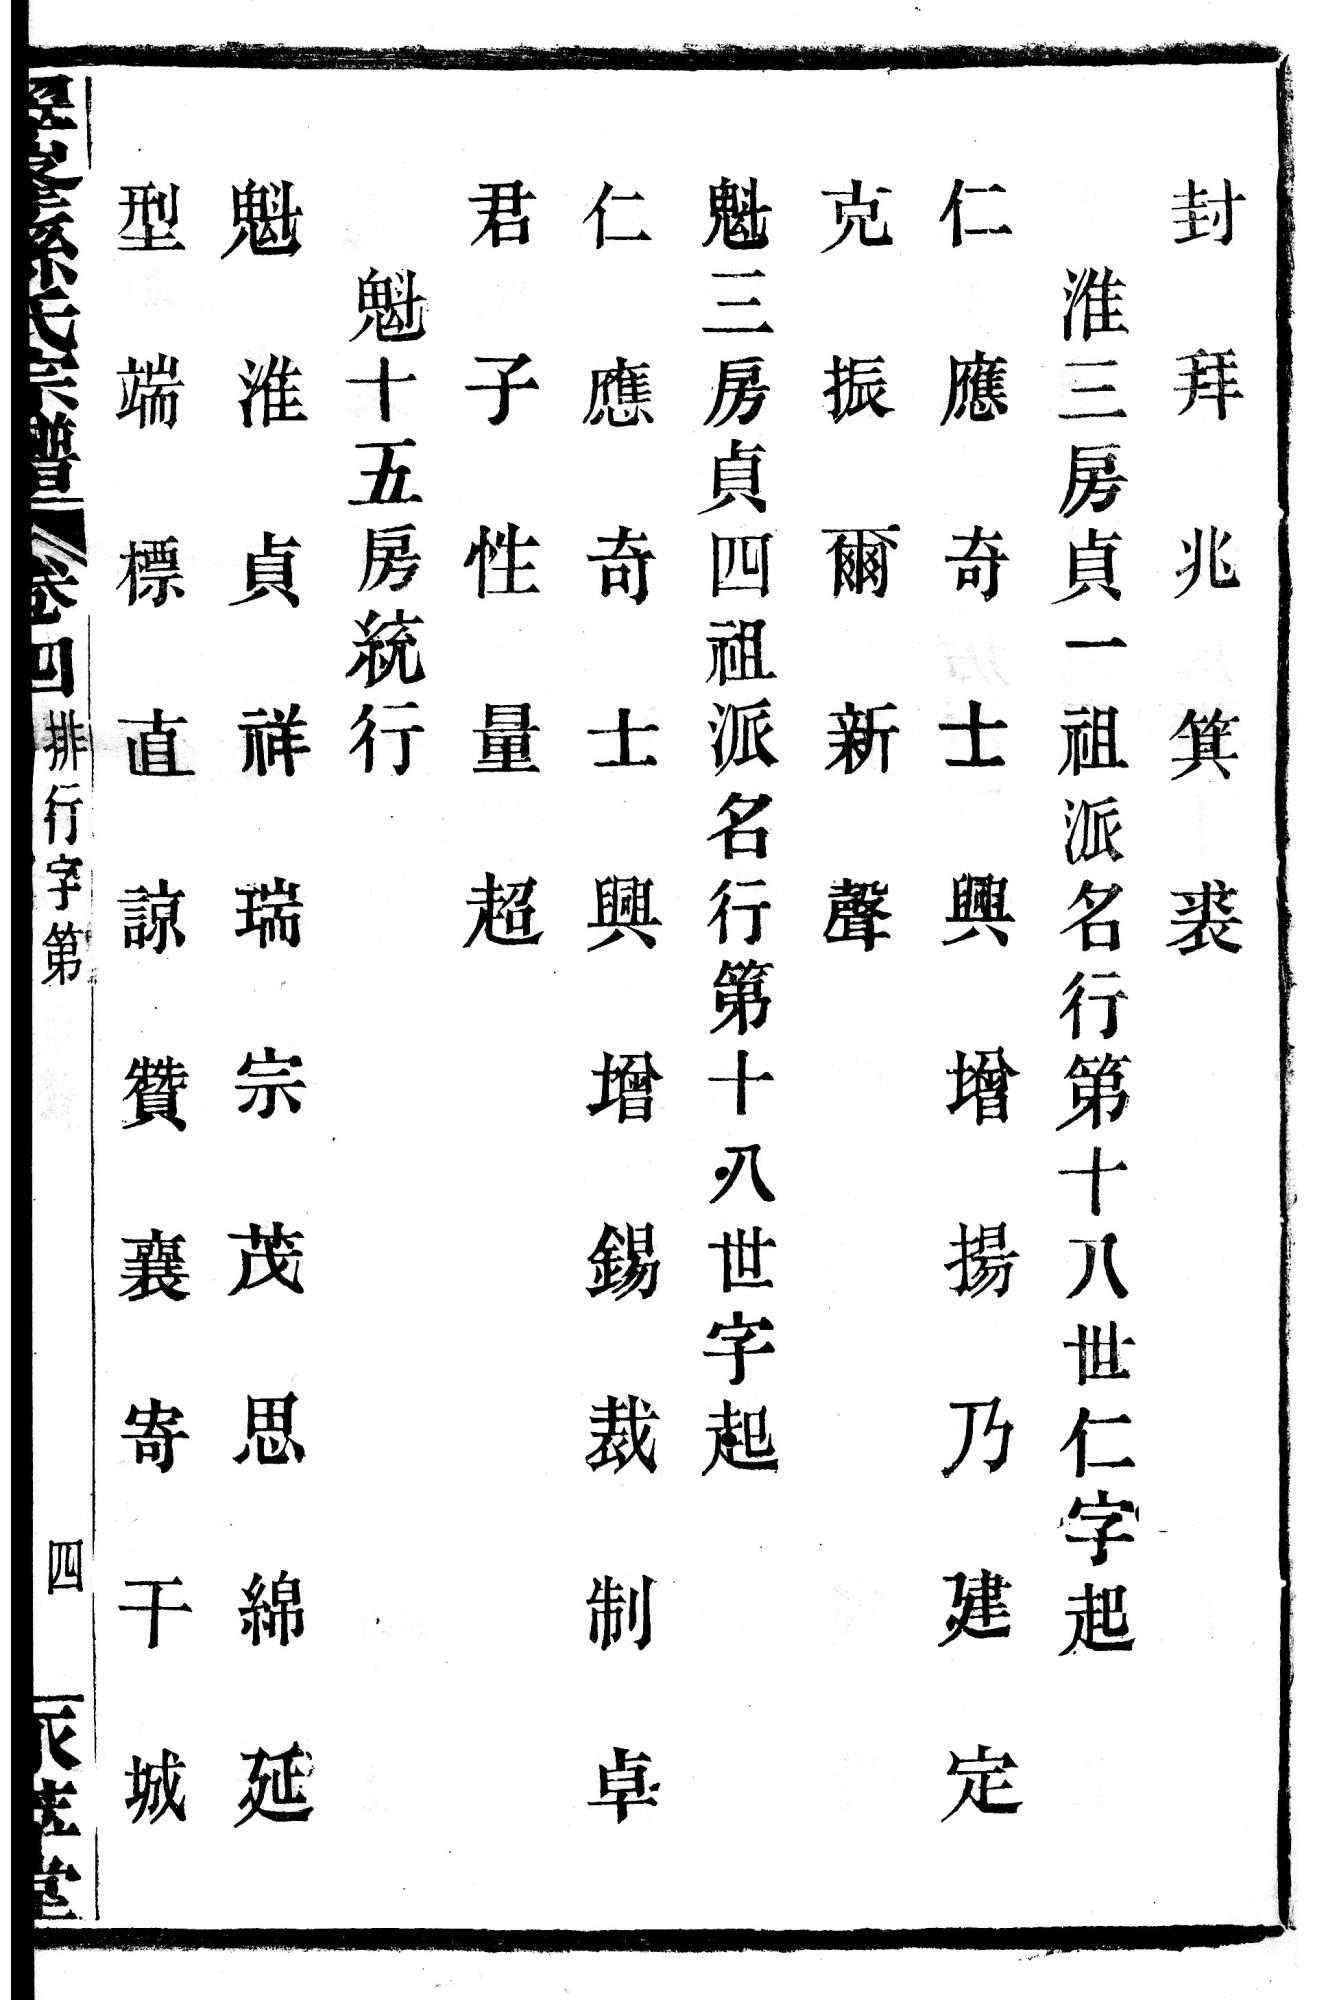 封拜兆箕裘
淮三房貞一祖派名行第十八世仁字起
仁應奇士興增揚乃建定
克振爾新聲
魁三房貞四祖派名行第十八世字起
仁應奇士興增錫裁制卓
君子性量超
魁十五房統行
魁淮貞祥瑞宗茂思綿延
型端標直諒贊襄寄干城
孫氏宗譜 卷四 排行字第 四 堂